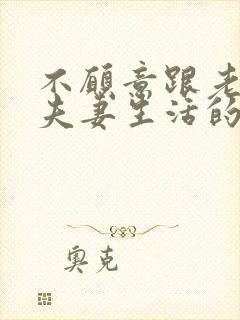 不愿意跟老
夫妻生活的
奥克